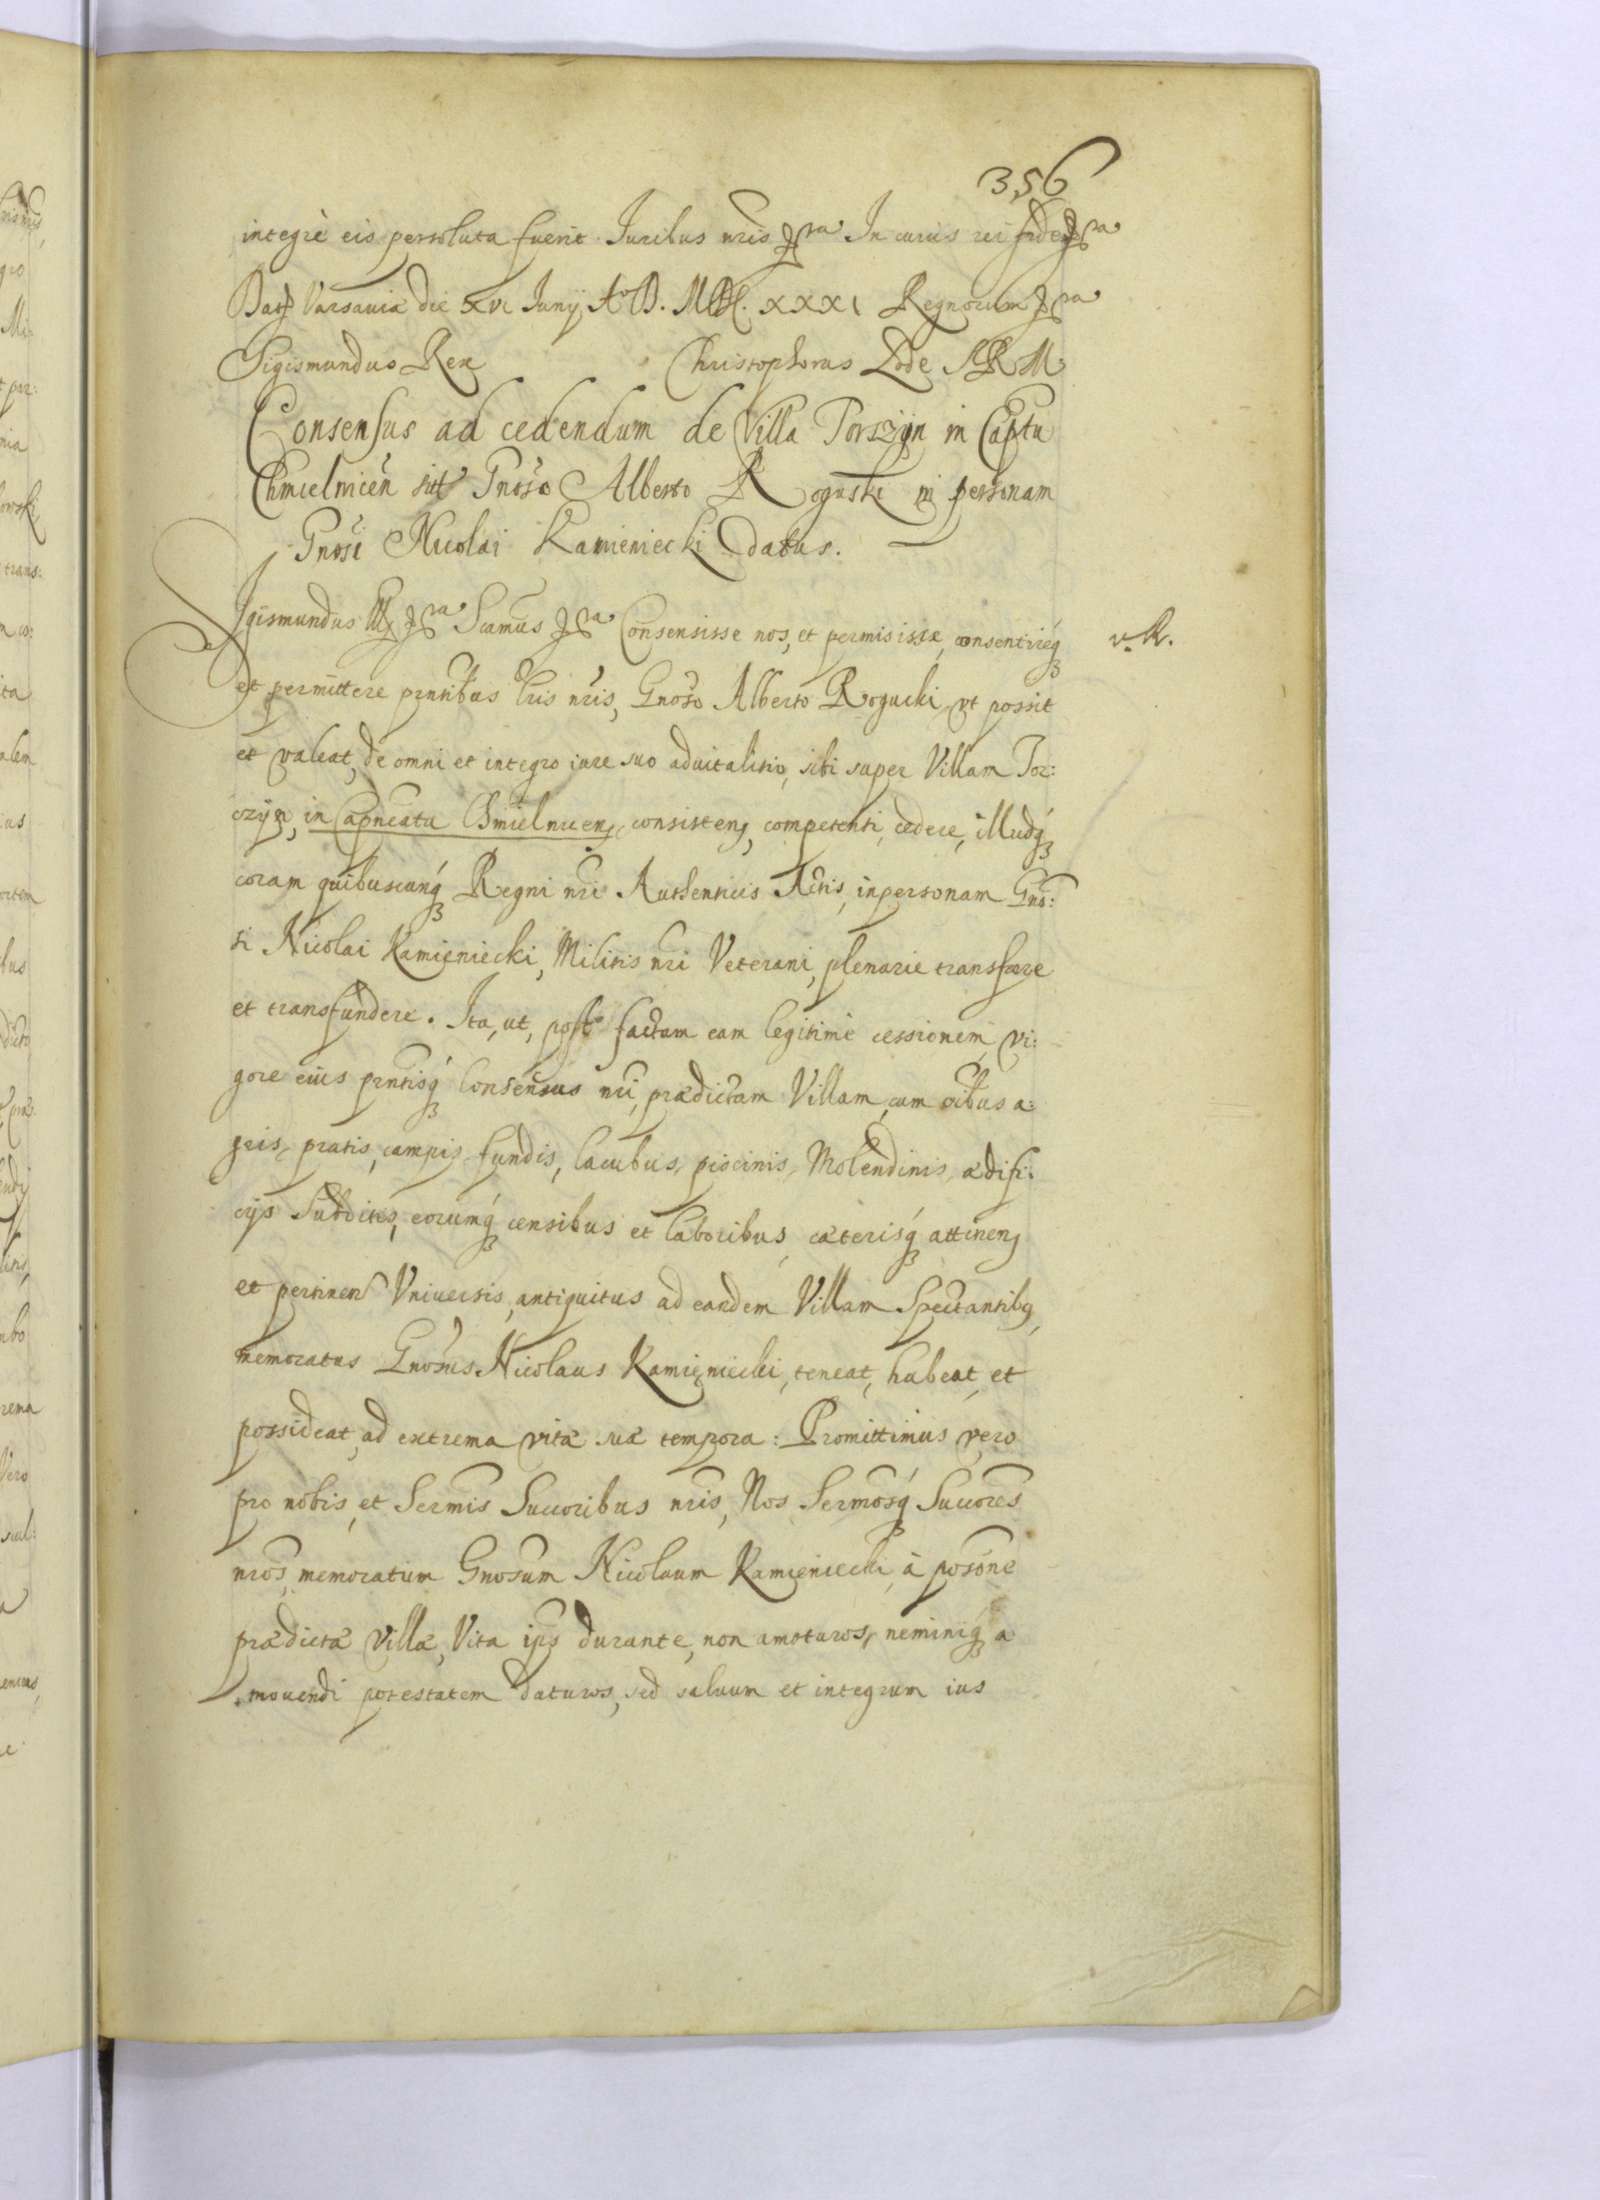 356
integrè eis persoluta fuerit. Iuribus nris &ra In cuius rei fidem &ra
Dat Varsauiæ die XVI Iunij Ao D. MDC. XXXI Regnorum &ra
Sigismundus Rex Christophorus SRM
Consensus ad cedendum de Villa Torszijn in Captu
Chmielnicen sitt Gnoso Alberto Roguski in personam
Gnosi Nicolai Kamieniecki datus.
Sigismundus III &ra Scamus &ra Consensisse nos, et permisisse, consentireq
v. R.
et permittere prntibus lris nris, Gnoso Alberto Rogucki, vt possit
et valeat, de omni et integro iure suo aduitalitio, sibi super Villam Tor:
czijn, in Capneatu Chmielnicen, consisten, competenti, cedere, illudq
coram quibuscunq Regni nri Authenticis Actis, in personam Gno:
si Nicolai Kamieniecki, Militis nri Veterani, plenarie transferre
et transfundere. Ita, ut, post factam eam legitime cessionem, vi:
gore eius prntisq Consensus nri, prædictam Villam, cum oibus a:
gris, pratis, campis, fundis, lacubus, piscinis, Molendinis, ædifi:
cijs Subditis, eorumq censibus et laboribus, cæterisq attinen
et pertinen Vniuersis, antiquitus ad eandem Villam Spectantibq,
memoratus Gnosus Nicolaus Kamieniecki, teneat, habeat, et
possideat, ad extrema vitæ suæ tempora: Promittimus vero
pro nobis, et Sermis Succoribus nris, Nos Sermosq Succores
nros, memoratum Gnosum Nicolaum Kamieniecki, à posone
prædictæ Villæ, Vita ips durante, non amoturos, neminiq a
mouendi potestatem daturos, sed saluum et integrum ius